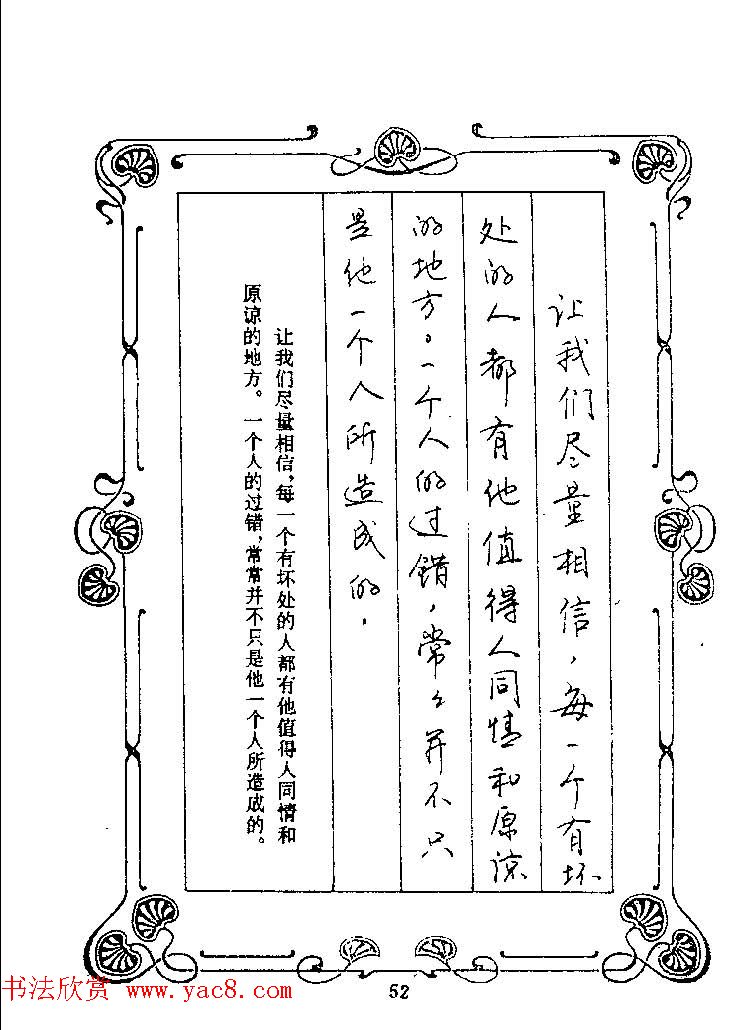 让我们尽量相信，每一个有坏
处的人都有他值得人同情和原谅
的地方。一个人的过错，常々并不只
是他一个人所造成的，
让我们尽量相信，每一个有坏处的人都有他值得人同情和
原谅的地方。一个人的过错，常常并不只是他一个人所造成的。
52
书法欣赏 www.yac8.com